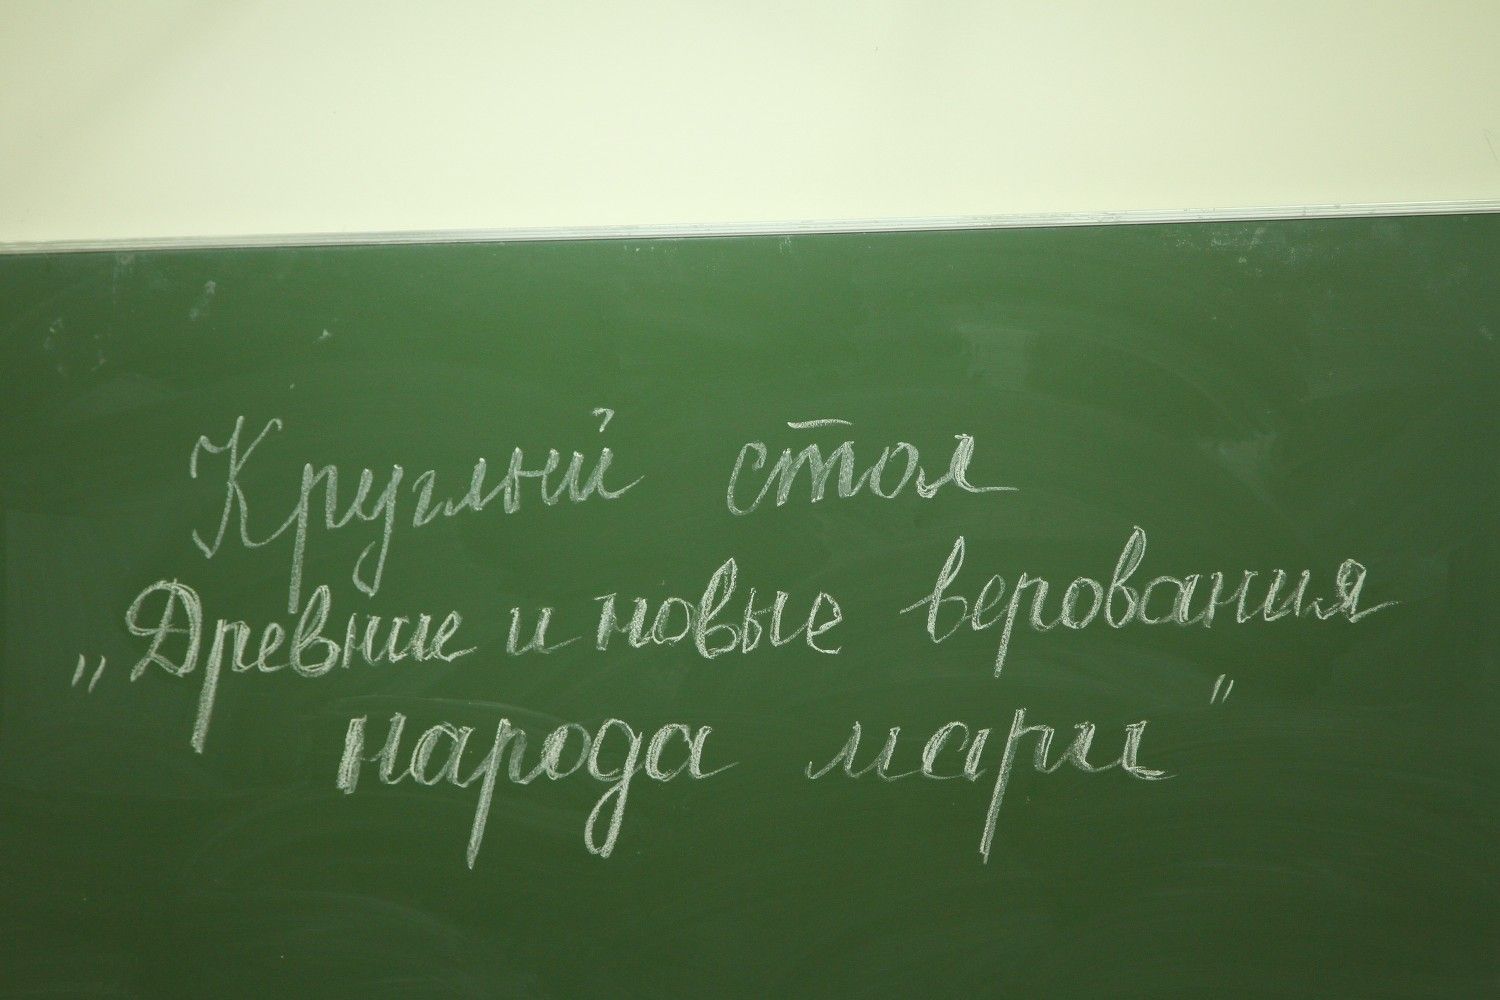 Круглый стол
„Древние и новые верования
народа мари"